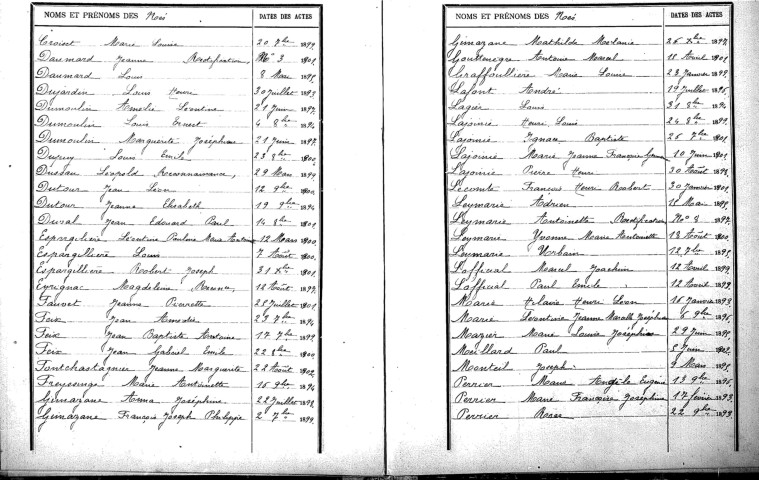 NOMS ET PRÉNOMS DES Nés DATES DES ACTES
Croizet Marie Louise 20 7bre 1899
Daumard Jeanne Rectification N° 3 1901
Daumard Louis 8 Mars 1895
Dujardin Louis Henri 30 Juillet 1893
Dumoulin Amélie Léontine 21 Juin 1897
Dumoulin Louis Ernest 4 8bre 1894
Dumoulin Marguerite Joséphine 21 Juin 1897
Dupuy Louis Emile 23 8bre 1900
Dussau Léopold 29 Mars 1899
Dutour Jean Léon 12 9bre 1900
Dutour Jeanne Elisabeth 19 9bre 1894
Duval Jean Edouard Paul 14 8bre 1901
Espargilière Léontine Pauline Marie Antoinette 12 Mars 1900
Espargillière Louis 7 Août 1900
Espargillière Robert Joseph 31 Xbre 1901
Eyrignac Magdeleine 12 Août 1897
Fauvet Jeanne Pierrette 28 Juillet 1901
Feix Jean Amédée 23 7bre 1894
Feix Jean Baptiste Antoine 17 7bre 1899
Feix Jean Gabriel Emile 22 8bre 1900
Fontchastagner Jeanne Marguerite 22 Août 1902
Freyconge Marie Antoinette 16 9bre 1894
Gimazane Anna Joséphine 22 Juillet 1898
Gimazane François Joseph Philippe 2 7bre 1894
NOMS ET PRÉNOMS DES Nés DATES DES ACTES
Gimazane Mathilde Mélanie 26 Xbre 1897
Gouttenègre Antoine Marcel 18 Avril 1901
Graffoulière Marie Louise 23 Janvier 1899
Lafont André 19 Juillet 1896
Lagier Louis 31 8bre 1894
Lajoinie Henri Louis 24 8bre 1891
Lajoinie Ignace Baptiste 26 7bre 1901
Lajoinie Marie Jeanne Françoise 10 Juin 1901
Lajoinie Pierre Henri 30 Août 1898
Lecomte François Henri Robert 30 Janvier 1901
Leymarie Adrien 18 Mars 1899
Leymarie Antoinette Rectification N° 8 1897
Leymarie Yvonne Marie Antoinette 13 Août 1900
Leymarie Urbain 12 7bre 1895
Lafficial Marcel Joachim 12 Avril 1899
Lafficial Paul Emile 12 Avril 1899
Marie Hilaire Henri Léon 16 Janvier 1893
Marie Léontine Jeanne Marcelle Joséphine 6 9bre 1896
Mazier Marie Louise Joséphine 29 Juin 1895
Meillard Paul 8 Juin 1902
Monteil Joseph 9 Mars 1895
Perrier Marie Angèle Eugénie 13 9bre 1896
Perrier Marie Françoise Joséphine 17 février 1893
Perrier Rose 22 9bre 1899